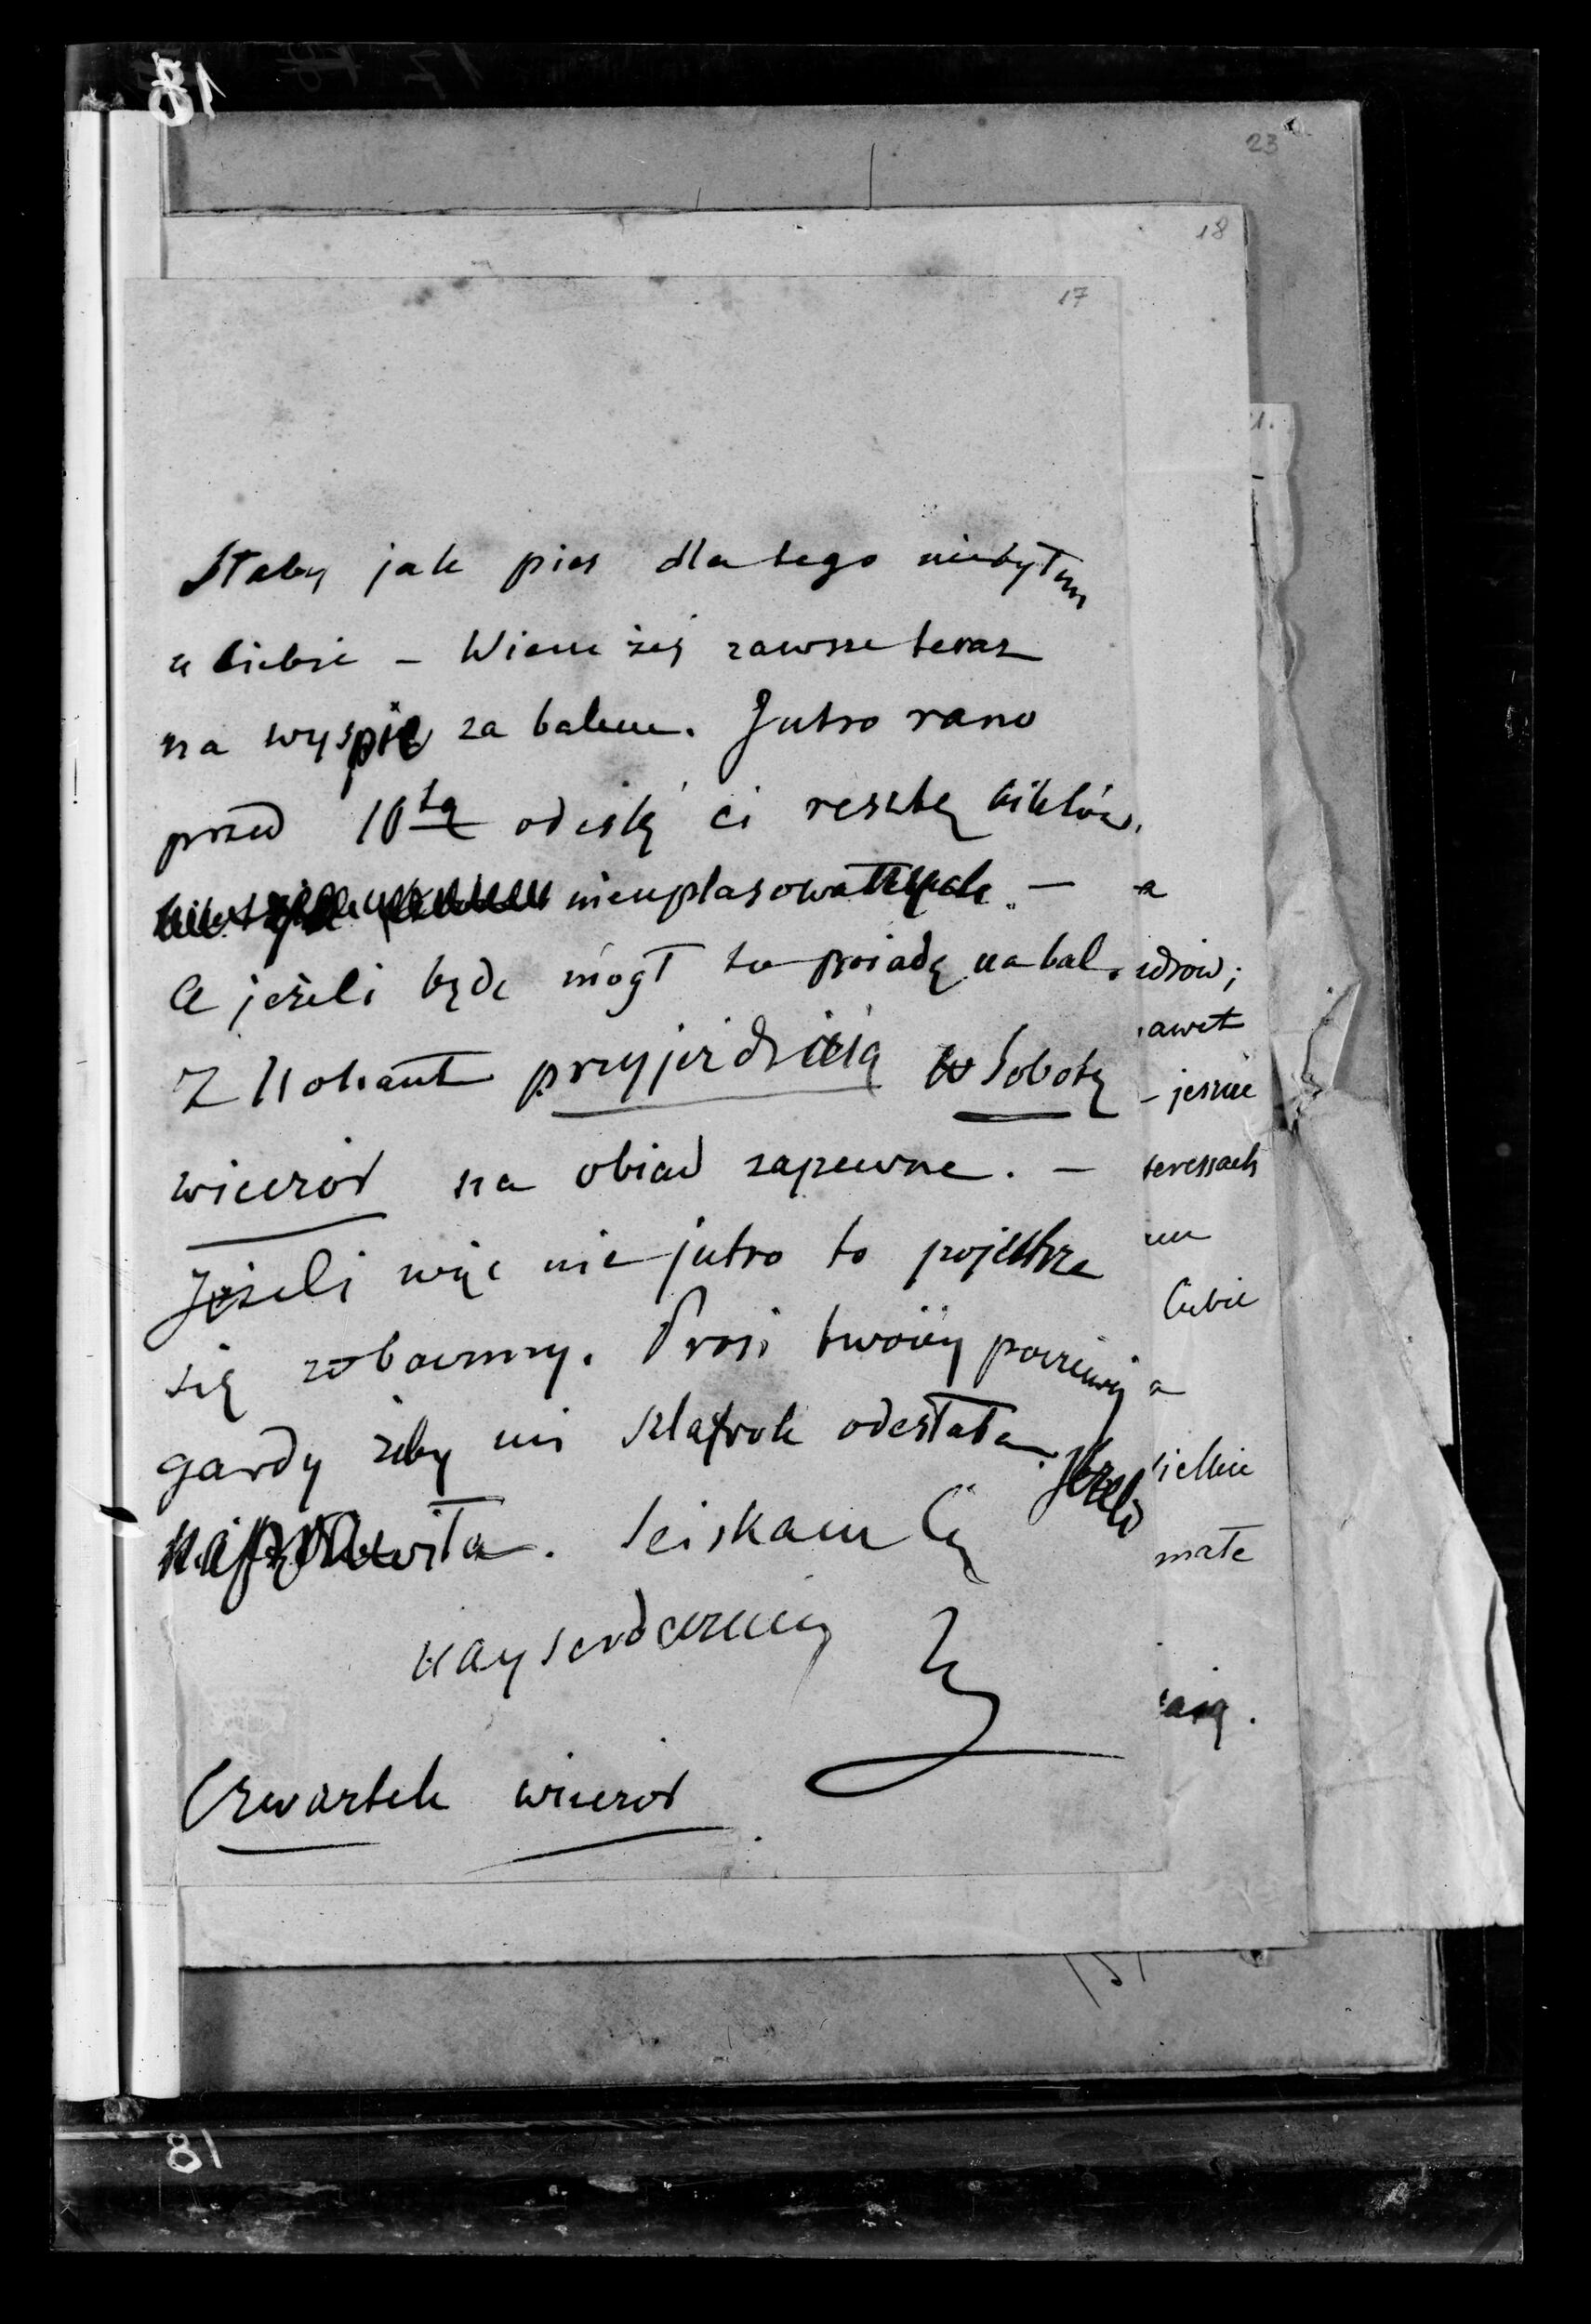 18
23
18
17
Słaby jak pies dla tego niebyłem
u Ciebie – Wiem żeś zawsze teraz
na wyspie za balem. Jutro rano
przed 10tą odeślę ci resztę biletów,
nieuplasowanych. –
A jeżeli będę mógł to pojadę na bal.
Z Nohant przyjeżdżają w Sobotę
wieczór na obiad zapewne. –
Jeżeli więc nie jutro to pojutrze
się zobaczemy. Proś twoiéy poczciwéj
gardy żeby mi szlafrok odesłała jeżeli
naprawiła. Sciskam Cię
nayserdeczniéj
Czwartek wieczór
a
zdrów;
awet
– jeszcze
teressach
Ciebie
a
małe
18